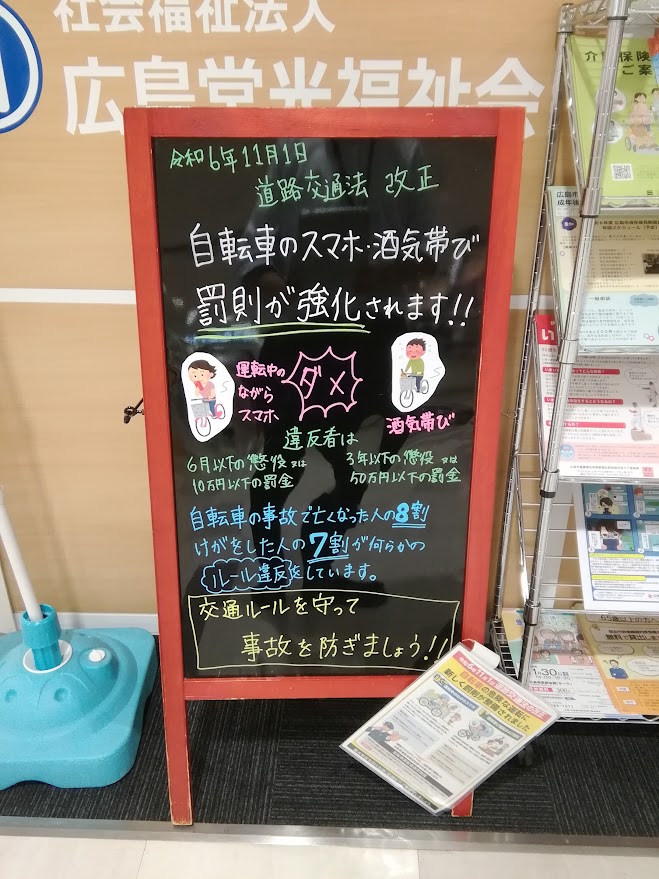 社会福祉法人
広島常光福祉会
令和6年11月1日
道路交通法 改正
自転車のスマホ・酒気帯び
罰則が強化されます!!
運転中の
ながら
スマホ
ダメ
酒気帯び
違反者は
6月以下の懲役又は
10万円以下の罰金
3年以下の懲役又は
50万円以下の罰金
自転車の事故で亡くなった人の8割
けがをした人の7割が何らかの
ルール違反をしています。
交通ルールを守って
事故を防ぎましょう!!
介護保険
ご案
広島市
成年後
一般相談
65歳以上の方へ
無料で貸出し